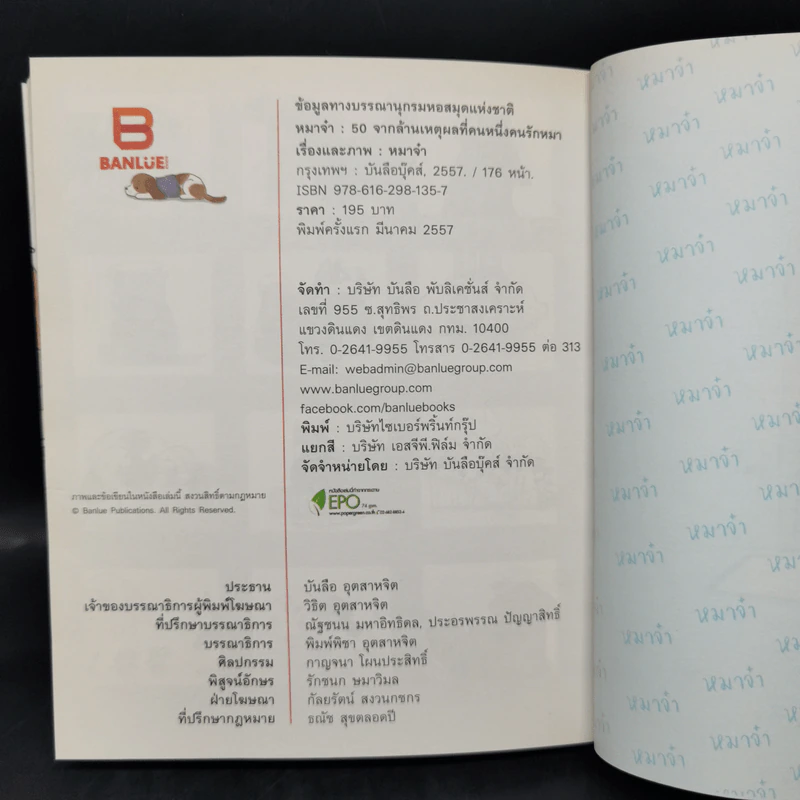 BANLUE
ข้อมูลทางบรรณานุกรมหอสมุดแห่งชาติ
หมาจ๋า : 50 จากล้านเหตุผลที่คนหนึ่งคนรักหมา
เรื่องและภาพ : หมาจ๋า
กรุงเทพฯ : บันลือบุ๊คส์, 2557. / 176 หน้า.
ISBN 978-616-298-135-7
ราคา : 195 บาท
พิมพ์ครั้งแรก มีนาคม 2557
จัดทำ : บริษัท บันลือ พับลิเคชั่นส์ จำกัด
เลขที่ 955 ซ.สุทธิพร ถ.ประชาสงเคราะห์
แขวงดินแดง เขตดินแดง กทม. 10400
โทร. 0-2641-9955 โทรสาร 0-2641-9955 ต่อ 313
E-mail: webadmin@banluegroup.com
www.banluegroup.com
facebook.com/banluebooks
พิมพ์ : บริษัทไซเบอร์พริ้นท์กรุ๊ป
แยกสี : บริษัท เอสจีพี.ฟิล์ม จำกัด
จัดจำหน่ายโดย : บริษัท บันลือบุ๊คส์ จำกัด
ภาพและข้อเขียนในหนังสือเล่มนี้ สงวนสิทธิ์ตามกฎหมาย
© Banlue Publications. All Rights Reserved.
EPO
ประธาน บันลือ อุตสาหจิต
เจ้าของบรรณาธิการผู้พิมพ์โฆษณา วิธิต อุตสาหจิต
ที่ปรึกษาบรรณาธิการ ณัฐชนน มหาอิทธิดล, ประอรพรรณ ปัญญาสิทธิ์
บรรณาธิการ พิมพ์พิชา อุตสาหจิต
ศิลปกรรม กาญจนา โผนประสิทธิ์
พิสูจน์อักษร รักชนก ษมาวิมล
ฝ่ายโฆษณา กัลยรัตน์ สงวนกชกร
ที่ปรึกษากฎหมาย ธณัช สุขตลอดปี
หมาจ๋า หมาจ๋า
หมาจ๋า หมาจ๋า
หมาจ๋า หมาจ๋า
หมาจ๋า หมาจ๋า
หมาจ๋า หมาจ๋า
หมาจ๋า หมาจ๋า
หมาจ๋า หมาจ๋า
หมาจ๋า หมาจ๋า
หมาจ๋า หมาจ๋า
หมาจ๋า หมาจ๋า